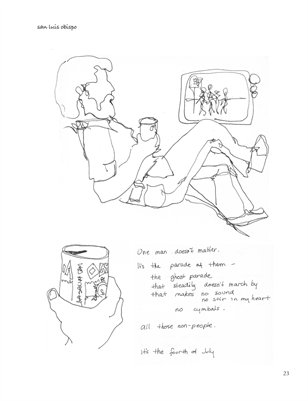 san luis obispo
One man doesn't matter.
It's the parade of them –
the ghost parade
that steadily doesn't march by
that makes no sound
no stir in my heart
no cymbals.
all those non-people.
it's the fourth of July
23